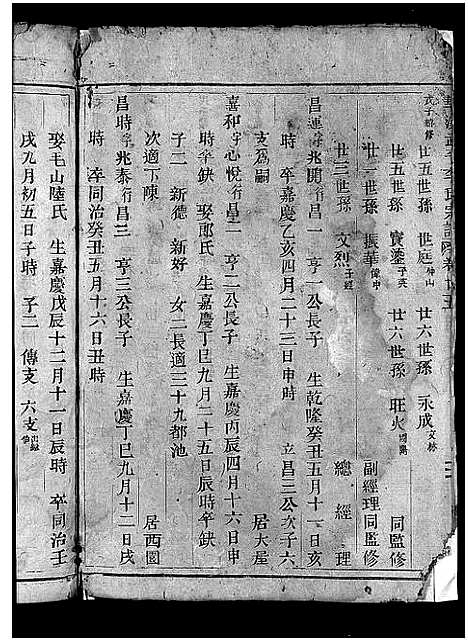 廿五世孫 世庭 廿六世孫 永成
廿五世孫 寶鎏 廿六世孫 旺火 同監修
廿二世孫 振華 副經理同監修
廿三世孫 文烈 總經理
昌連將兆開行昌一 亨一公長子 生乾隆癸丑五月十一日亥
時 卒嘉慶乙亥四月二十三日申時 立昌三公次子六
支為嗣 居大屋
喜和將心悅行昌二 亨二公長子 生嘉慶丙辰四月十六日申
時卒缺 娶鄭氏 生嘉慶丁巳九月二十五日辰時卒缺
子二 新德 新好 女二長適三十九都池
次適丁陳 居西園
昌時將兆泰行昌三 亨三公長子 生嘉慶丁巳九月十二日戌
時 卒同治癸丑五月十六日丑時
娶毛山陸氏 生嘉慶戊辰十二月十一日辰時 卒同治壬
戌九月初五日子時 子二 傳支 六支